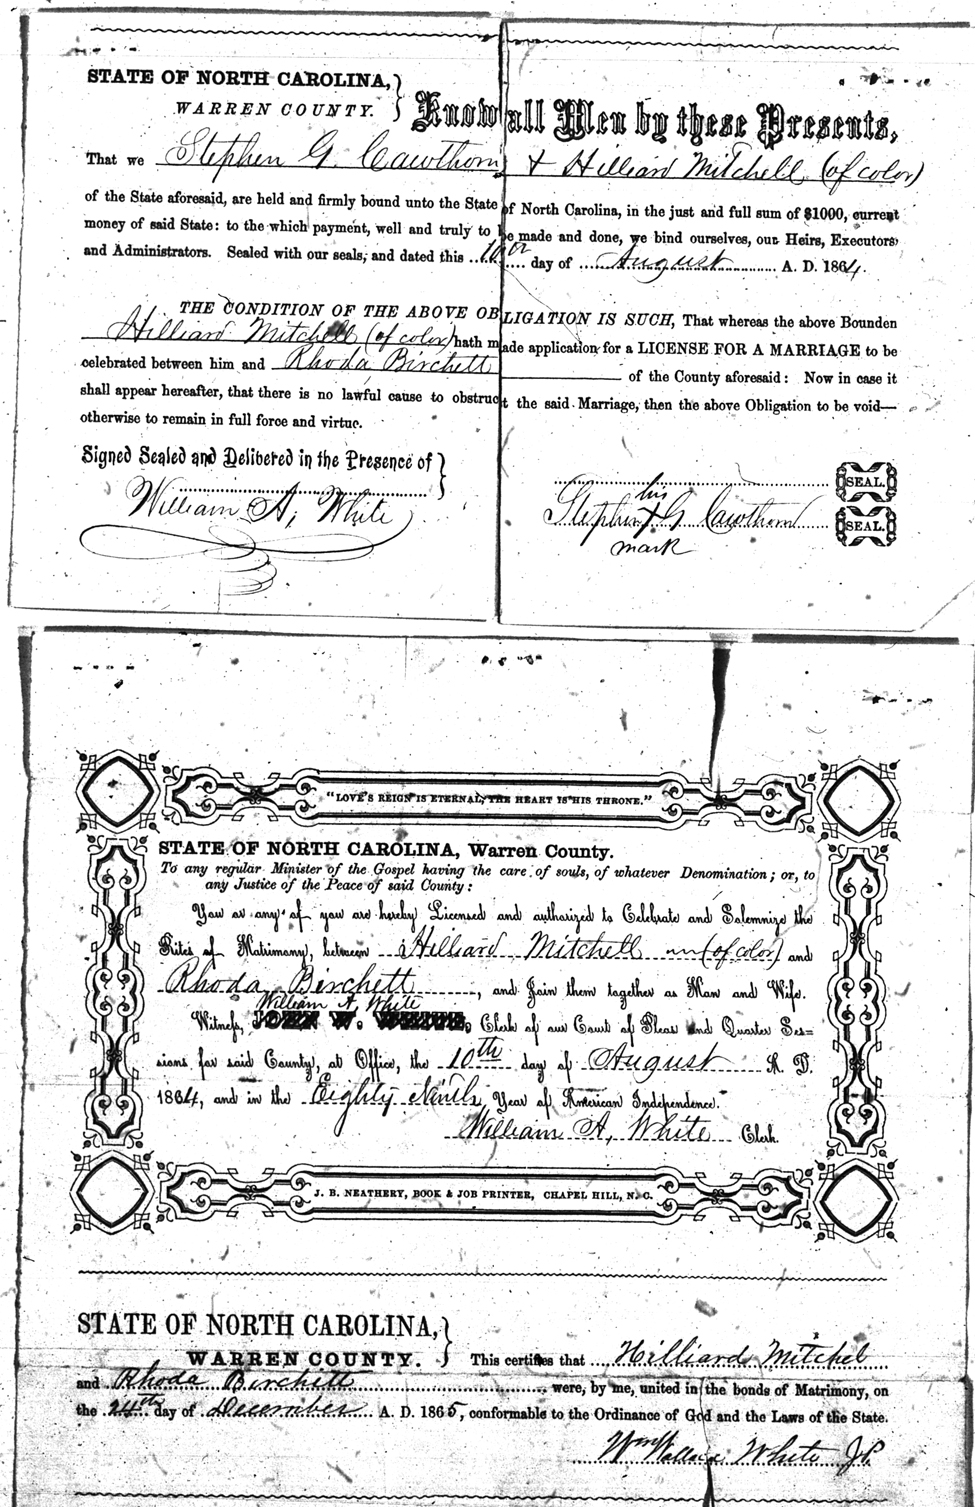 STATE OF NORTH CAROLINA,
WARREN COUNTY.
Know all Men by these Presents,
That we Stephen G. Cawthorn & Hilliard Mitchell (of color)
of the State aforesaid, are held and firmly bound unto the State of North Carolina, in the just and full sum of $1000, current
money of said State: to the which payment, well and truly to be made and done, we bind ourselves, our Heirs, Executors
and Administrators. Sealed with our seals, and dated this 10th day of August A. D. 1864.
THE CONDITION OF THE ABOVE OBLIGATION IS SUCH, That whereas the above Bounden
Hilliard Mitchell (of color) hath made application for a LICENSE FOR A MARRIAGE to be
celebrated between him and Rhoda Birchett of the County aforesaid: Now in case it
shall appear hereafter, that there is no lawful cause to obstruct the said Marriage, then the above Obligation to be void—
otherwise to remain in full force and virtue.
Signed Sealed and Delibered in the Presence of
William A, White
SEAL.
his
Stephen + G Cawthorn SEAL.
mark
"LOVE'S REIGN IS ETERNAL, THE HEART IS HIS THRONE."
STATE OF NORTH CAROLINA, Warren County.
To any regular Minister of the Gospel having the care of souls, of whatever Denomination; or, to
any Justice of the Peace of said County:
You or any of you are hereby Licensed and authorized to Celebrate and Solemnize the
Rites of Matrimony, between Hilliard Mitchell (of color) and
Rhoda Birchett, and Join them together as Man and Wife.
William A. White
Witness, JOHN W. WHITE, Clerk of our Court of Pleas and Quarter Ses=
sions for said County, at Office, the 10th day of August A. D.
1864, and in the Eighty Ninth Year of American Independence.
William A, White Clerk
J. B. NEATHERY, BOOK & JOB PRINTER, CHAPEL HILL, N. C.
STATE OF NORTH CAROLINA,
WARREN COUNTY. This certifies that Hilliard Mitchel
and Rhoda Birchett were, by me, united in the bonds of Matrimony, on
the 24th day of December A. D. 1865, conformable to the Ordinance of God and the Laws of the State.
Wm Wallace White J.P.